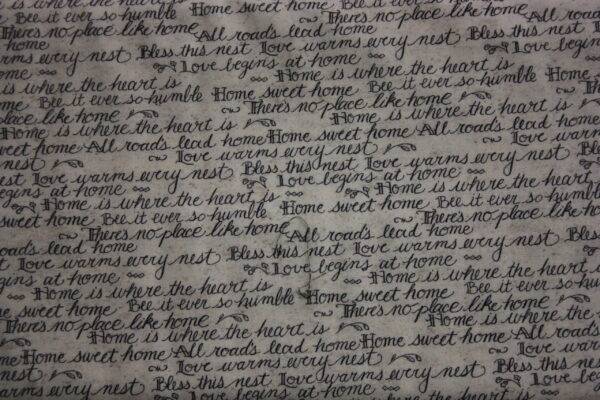 is where the heart is Home sweet home There's no
Bee it ever so humble There's no place like home All roads
There's no place like home All roads lead home
home Bless this nest Love warms every nest Bless this nest
warms every nest Love begins at home Love begins
home Home is where the heart is
is where the heart is Home sweet home Bee it ever so humble Home
Bee it ever so humble There's no place like home There's
place like home All roads lead home
Home is where the heart is Home sweet home All roads lead home
sweet home All roads lead home Love warms every nest Love
nest Love warms every nest Bless this nest Love warms every nest Bless
Love warms every nest Bless this nest Love begins at home
begins at home Home is where the heart
Home is where the heart is Home sweet home Bee it ever so humble
sweet home Bee it ever so humble There's no place like
There's no place like home All roads lead home
roads lead home Bless this nest Love warms every nest Bless
Love warms every nest Love begins at home
begins at home Home is where the heart is
Home is where the heart is Home sweet home Bee it ever so humble
Bee it ever so humble There's no place like home
There's no place like home Home is where the heart is
Home is where the heart is Home sweet home All roads
Home sweet home All roads lead home Love warms every nest
Love warms every nest Bless this nest
nest Bless this nest Love warms every nest Love begins
warms every nest Love begins at home where the heart is